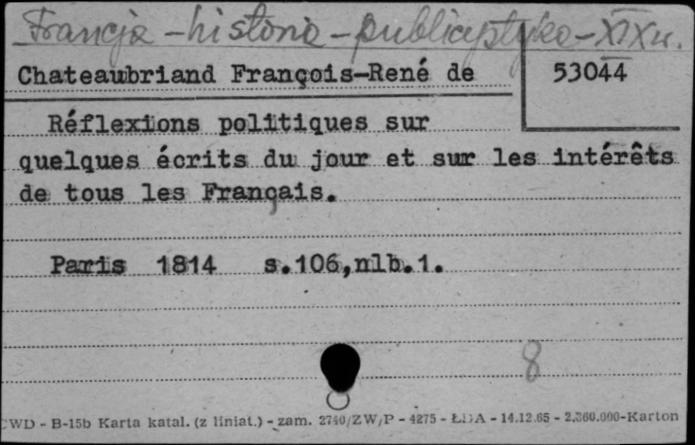 Francja - historia - publicystyka - XIXw.
Chateaubriand François-René de
53044
Réflexions politiques sur
quelques écrits du jour et sur les intérêts
de tous les Français.
Paris 1814 s.106,nlb.1.
8
CWD - B-15b Karta katal. (z liniat.) - zam. 2740/ZW/P - 4275 - ŁDA - 14.12.65 - 2.360.000-Karton